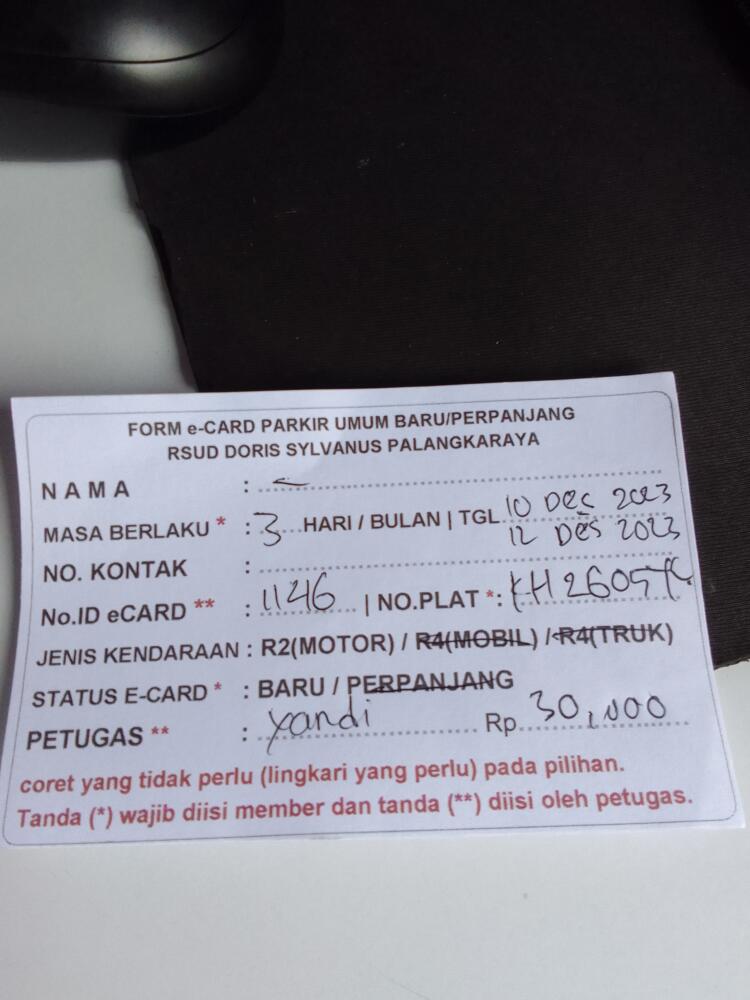 FORM e-CARD PARKIR UMUM BARU/PERPANJANG
RSUD DORIS SYLVANUS PALANGKARAYA
N A M A :
MASA BERLAKU * : 3 HARI / BULAN | TGL 10 Des 2023
12 Des 2023
NO. KONTAK :
No.ID eCARD ** : 1146 | NO.PLAT *: KH 2605
JENIS KENDARAAN : R2(MOTOR) / R4(MOBIL) / R4(TRUK)
STATUS E-CARD * : BARU / PERPANJANG
PETUGAS ** : yandi Rp. 30,000
coret yang tidak perlu (lingkari yang perlu) pada pilihan.
Tanda (*) wajib diisi member dan tanda (**) diisi oleh petugas.